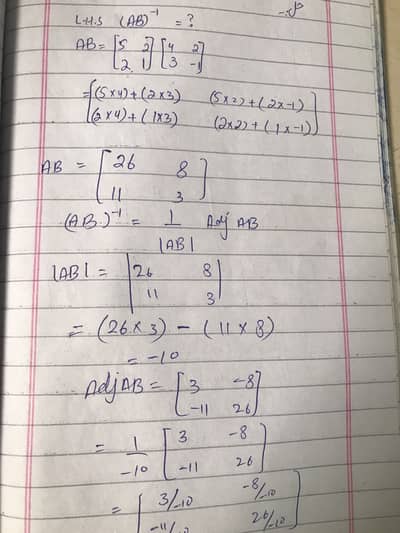 L.H.S (AB)⁻¹ = ?
AB = [5 2 [4 2
2 1] 3 -1]
= [(5×4)+(2×3) (5×2)+(2×-1)
(2×4)+(1×3) (2×2)+(1×-1)]
AB = [26 8
11 3]
(AB)⁻¹ = 1/|AB| Adj AB
|AB| = |26 8
11 3|
= (26×3) - (11×8)
= -10
Adj AB = [3 -8
-11 26]
= 1/-10 [3 -8
-11 26]
= [3/-10 -8/-10
-11/-10 26/-10]